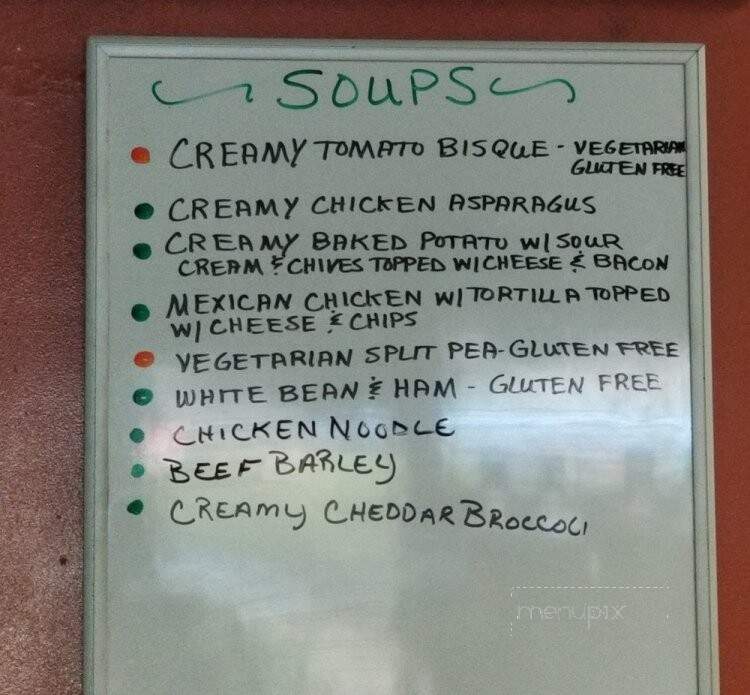 SOUPS
• CREAMY TOMATO BISQUE - VEGETARIAN
GLUTEN FREE
• CREAMY CHICKEN ASPARAGUS
• CREAMY BAKED POTATO W/ SOUR
CREAM & CHIVES TOPPED W/ CHEESE & BACON
• MEXICAN CHICKEN W/ TORTILLA TOPPED
W/ CHEESE & CHIPS
• VEGETARIAN SPLIT PEA - GLUTEN FREE
• WHITE BEAN & HAM - GLUTEN FREE
• CHICKEN NOODLE
• BEEF BARLEY
• CREAMY CHEDDAR BROCCOLI
menupix